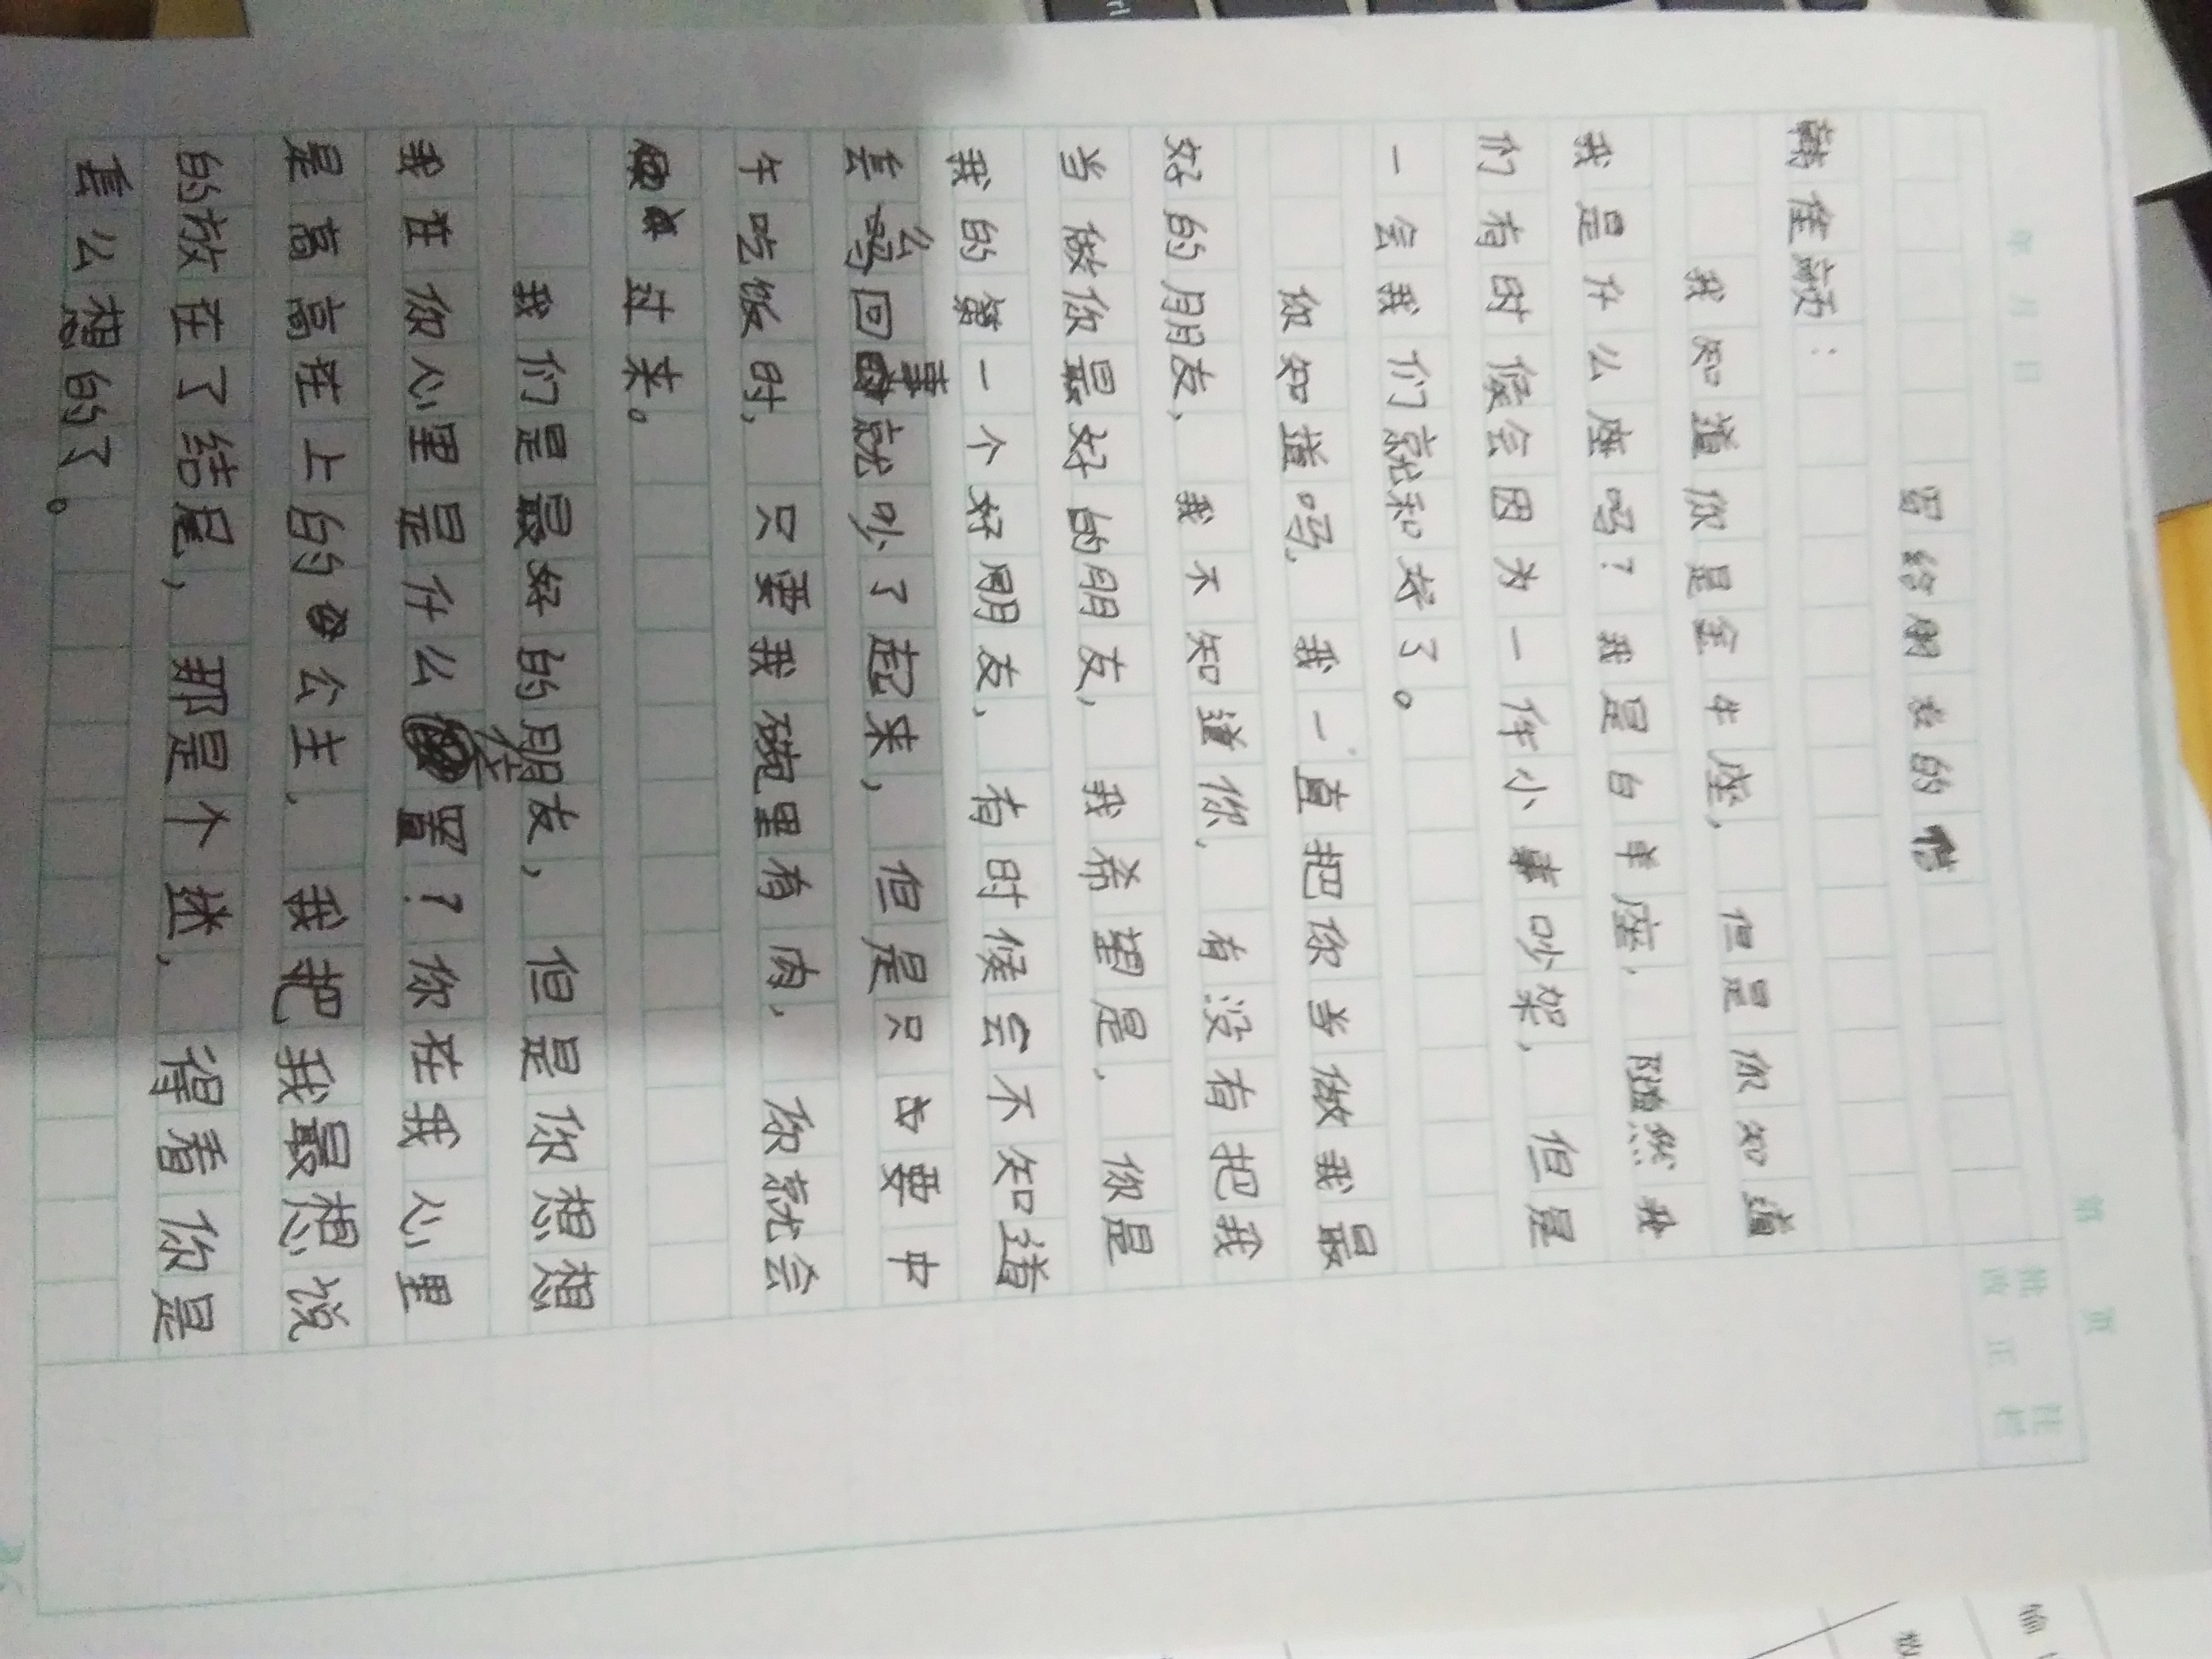 年 月 日
第 页
写给朋友的信
批改正栏
韩佳颖:
我知道你是金牛座,但是你知道
我是什么座吗?我是白羊座,隨然我
们有时候会因为一件小事吵架,但是
一会我们就和好了。
你知道吗,我一直把你当做我最
好的朋友,我不知道你,有没有把我
当做你最好的朋友,我希望是,你是
我的第一个好朋友,有时候会不知道
怎么回事就吵了起来,但是只要中
午吃饭时,只要我碗里有肉,你就会
过来。
我们是最好的朋友,但是你想想
我在你心里是什么位置?你在我心里
是高高在上的公主,我把我最想说
的放在了结尾,那是个迷,得看你是
怎么想的了。